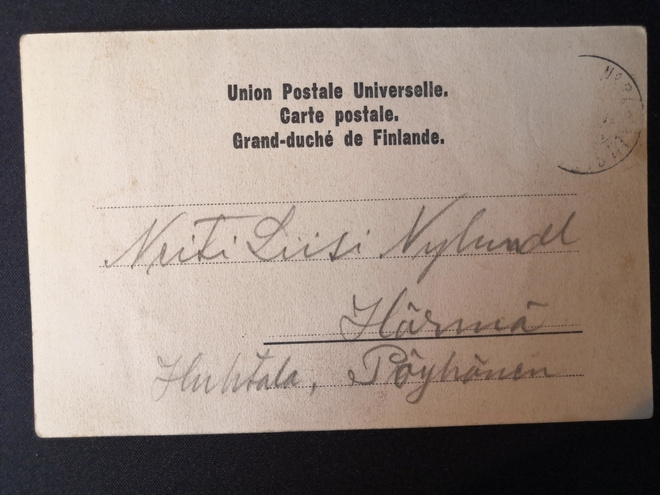 Union Postale Universelle.
Carte postale.
Grand-duché de Finlande.
Neiti Liisi Nylundl
Härmä
Huhtala, Pöyhönen